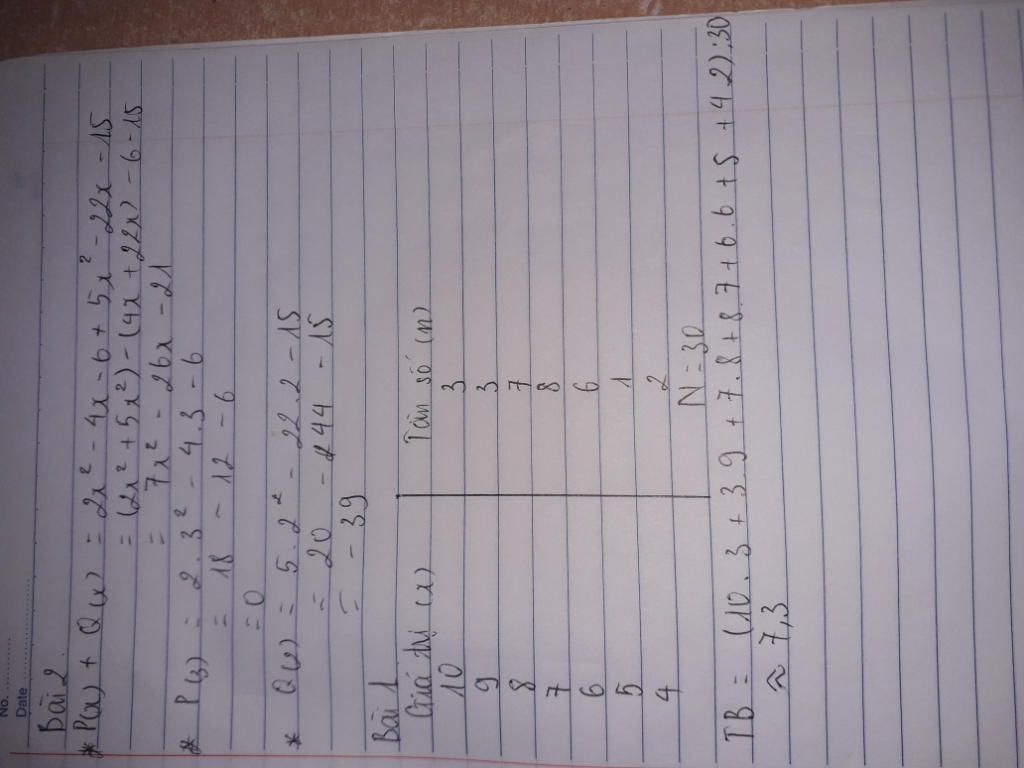 No. ..........
Date ....................
Bài 2.
* P(x) + Q(x) = 2x² - 4x - 6 + 5x² - 22x - 15
= (2x² + 5x²) - (4x + 22x) - 6 - 15
= 7x² - 26x - 21
* P(3) = 2 . 3² - 4.3 - 6
= 18 - 12 - 6
= 0
* Q(2) = 5 . 2² - 22.2 - 15
= 20 - 44 - 15
= - 39
Bài 1
Giá trị (x) Tần số (n)
10 3
9 3
8 7
7 8
6 6
5 1
4 2
N = 30
TB = (10 . 3 + 3.9 + 7.8 + 8.7 + 6.6 + 5 + 4.2) : 30
≈ 7,3